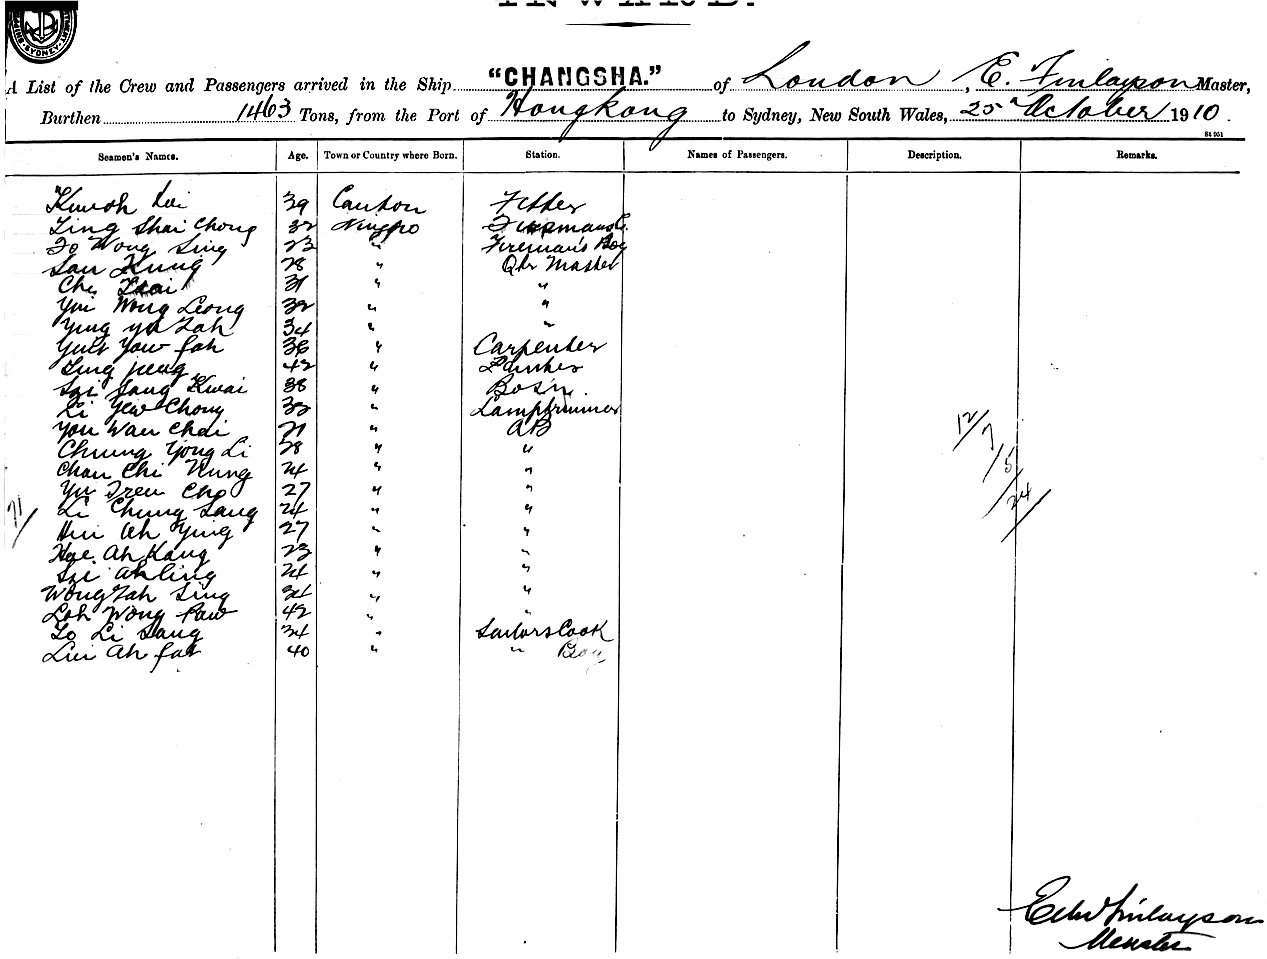 INWARD.
A List of the Crew and Passengers arrived in the Ship "CHANGSHA." of London, E. Finlayson Master,
Burthen 1463 Tons, from the Port of Hongkong to Sydney, New South Wales, 25 October 1910.
St 951
Seamen's Names. Age. Town or Country where Born. Station. Names of Passengers. Description. Remarks.
Kwoh Lui 39 Canton Fitter
Ling Shai Chong 32 Ningpo
Jo Wong Sing 23 " Fireman's Boy
San Kung 28 " Qtr Master
Che 31 " "
Yui Wong Leong 32 " "
Ying Yu Zah 34 " "
Yuit Yow fah 36 " Carpenter
Ling 42 "
Szi Sang Kwai 38 " Bosn
Li Yew Chong 33 " Lamptrimmer
You Wan Chai 21 " AB
Chung Yong Li 28 " "
Chan Chi Kung 24 " "
Yu Tren Cho 27 " "
Li Chung Sang 24 " "
Hui Ah Ying 27 " "
Hoe Ah Kang 23 " "
Szi Ah Ling 24 " "
Wong Zah Sing 34 " "
Loh Wong Paw 42 " "
Jo Li Sang 34 " Sailors Cook
Lui Ah fat 40 " " Boy
71/
12/7/5/24
Edw Finlayson
Master